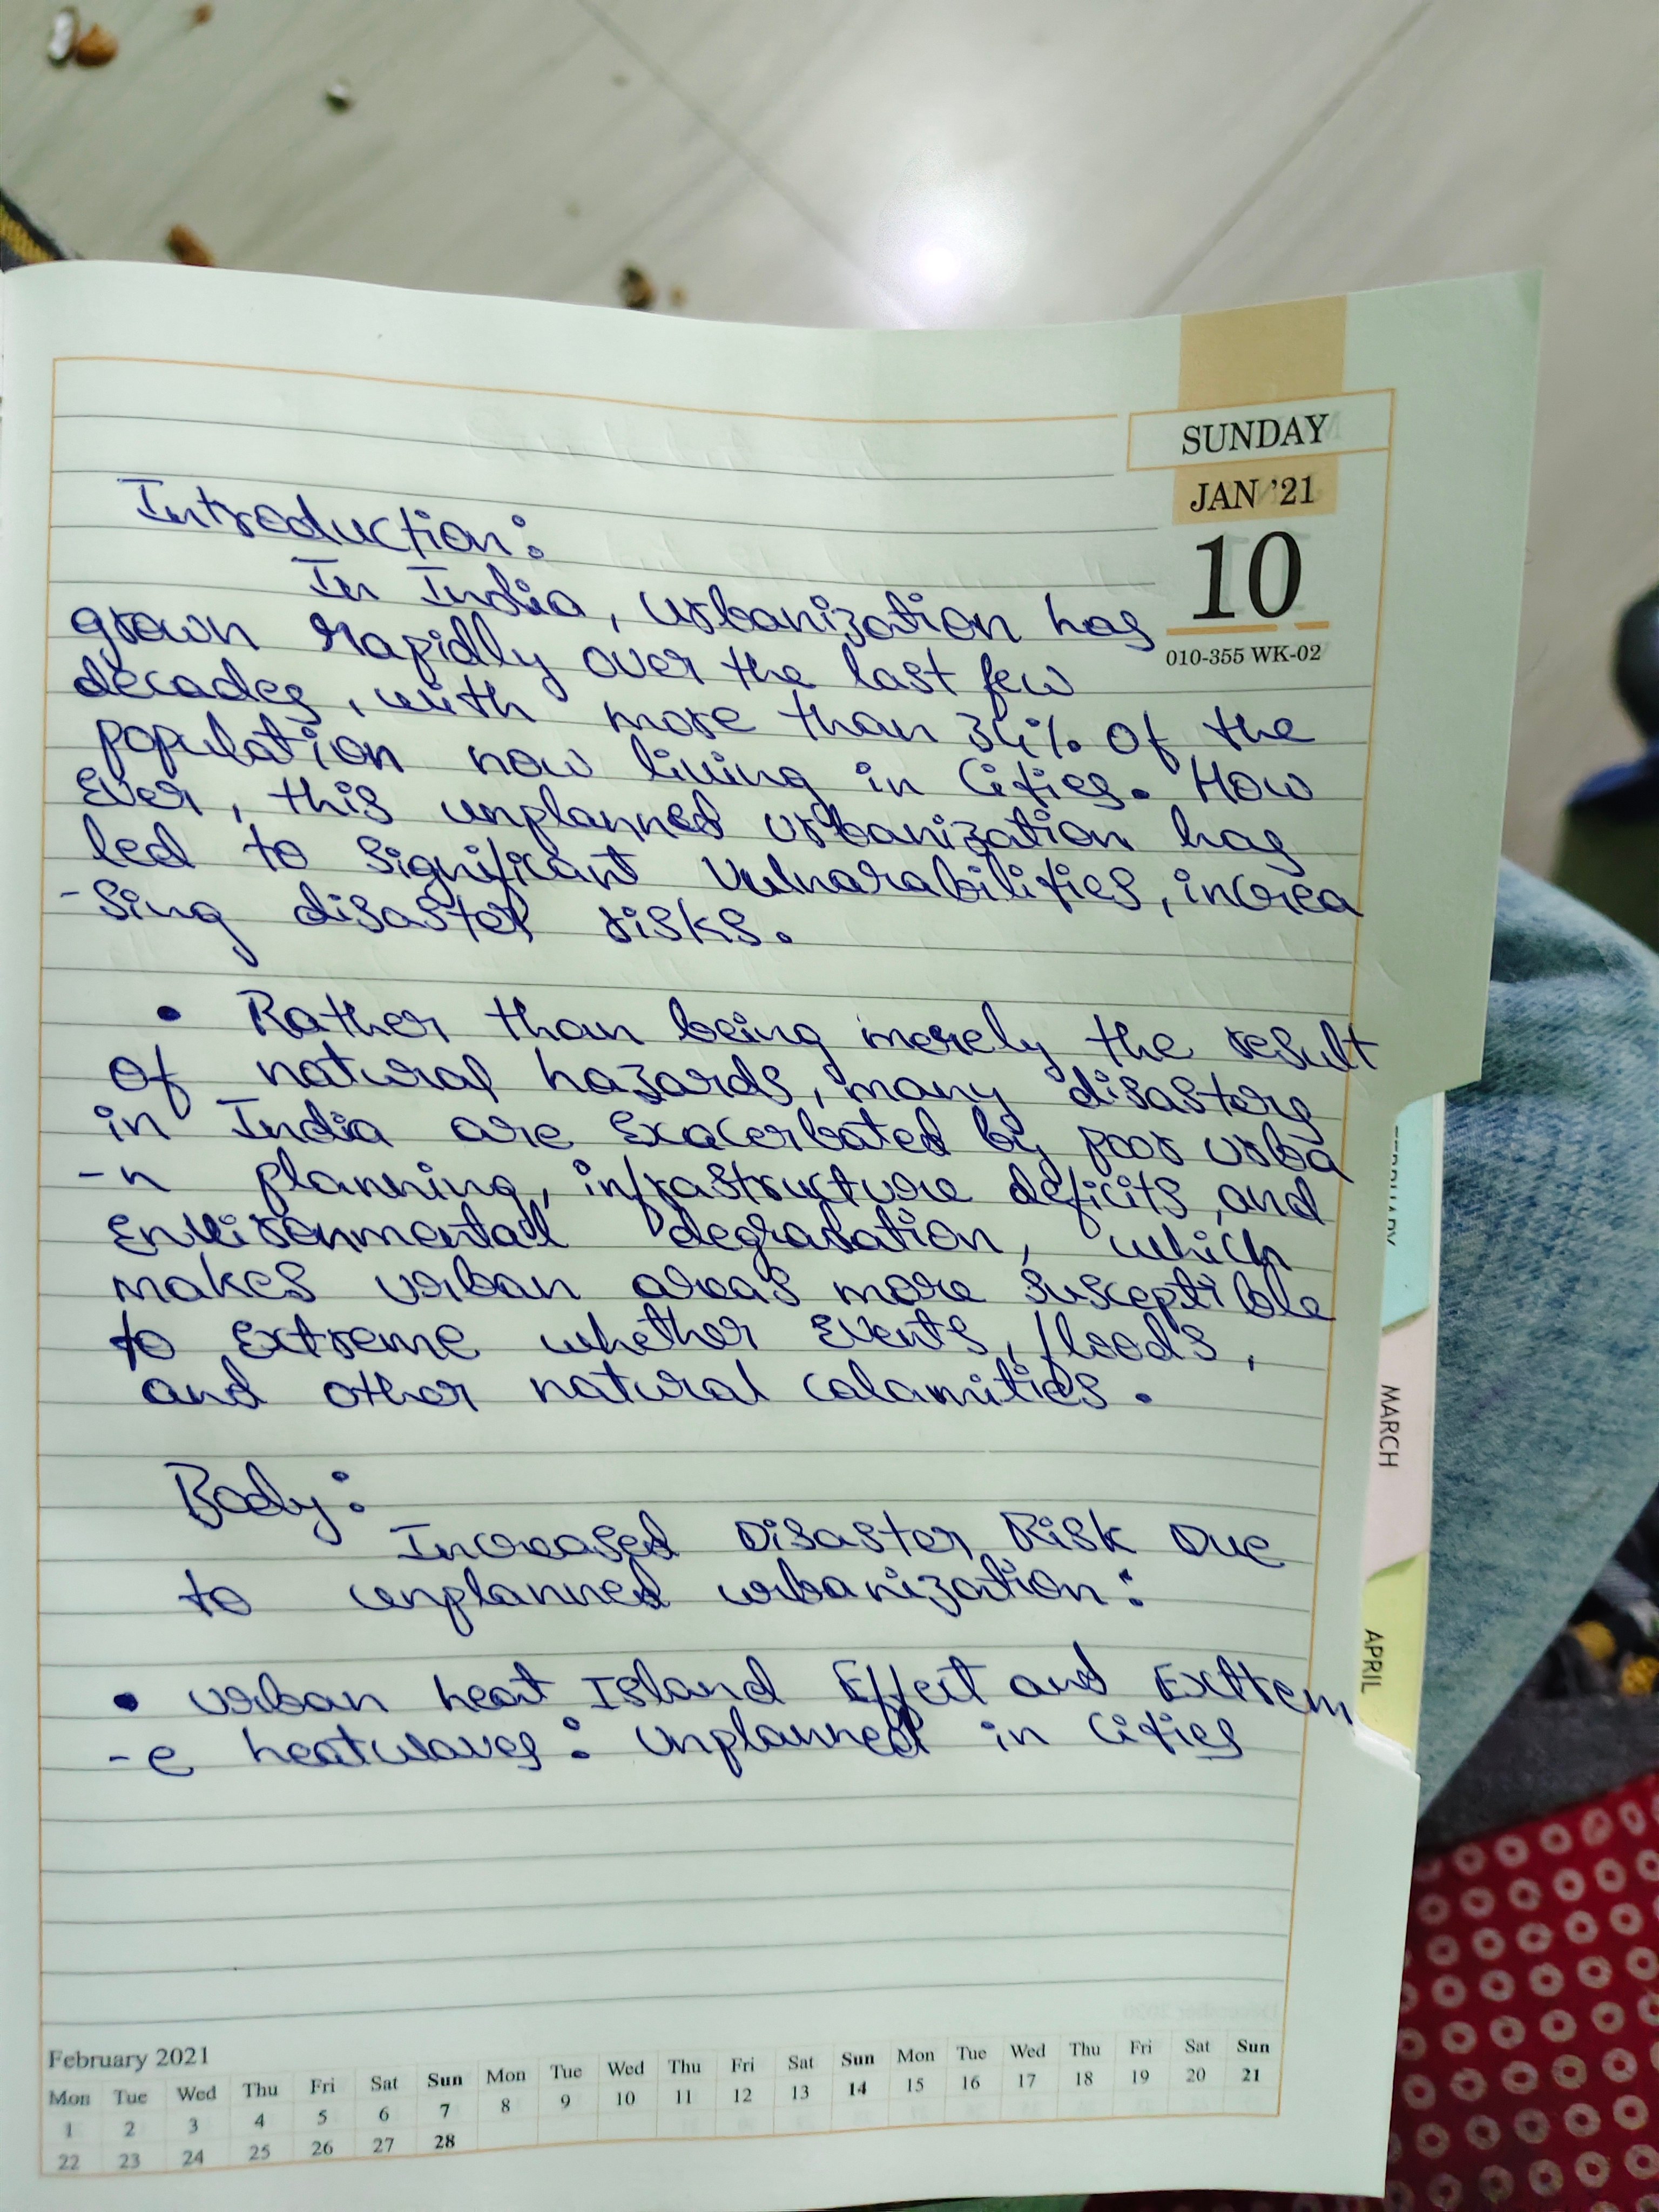 SUNDAY
JAN '21
10
010-355 WK-02
Introduction:
In India, urbanization has
grown rapidly over the last few
decades, with more than 34% of the
population now living in Cities. How
ever, this unplanned urbanization has
led to significant vulnarabilities, increa
-sing disaster risks.
• Rather than being merely the result
of natural hazards, many disasters
in India are exacerbated by poor urba
-n planning, infrastructure deficits, and
environmental degradation, which
makes urban areas more susceptible
to extreme whether events, floods,
and other natural calamities.
Body:
Increased Disaster Risk Due
to unplanned urbanization:
• Urban heat Island Effect and Exttrem
-e heatwaves: Unplanned in Cities
FEBRUARY
MARCH
APRIL
February 2021
Mon Tue Wed Thu Fri Sat Sun Mon Tue Wed Thu Fri Sat Sun Mon Tue Wed Thu Fri Sat Sun
1 2 3 4 5 6 7 8 9 10 11 12 13 14 15 16 17 18 19 20 21
22 23 24 25 26 27 28